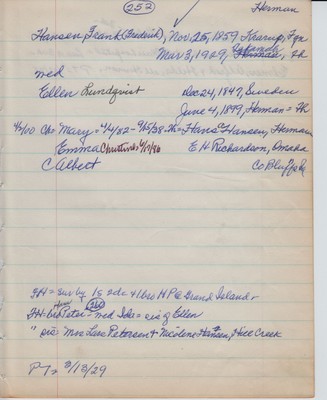 252
Herman
Hansen, Frank (Frederick), Nov 25, 1859 Kraruf, Fyn
Mar 3, 1929, Tekamah
med
Ellen Lundqvist Dec 24, 1847, Sweden
June 4, 1899, Herman
4/2/00 Chs Mary = 4/4/82 - 9/25/38 = Hans C Hansen, Herman
Emma Christine E H Richardson, Omaha
C Albert Co Bluffs Ia
FH = surv by 1 s 2 ds & 1 bro H P @ Grand Island &
FH bro Peter med Ida = sis of Ellen
" sis Mrs Lars Petersen & Nicolene Hansen, Hill Creek
PT = 3/13/29